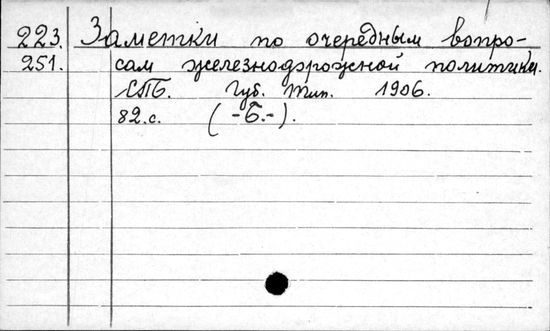 223. Заметки по очередным вопро-
251. сам железнодорожной политики.
СПБ. Губ. Тип. 1906.
82.с. (-Б.-).